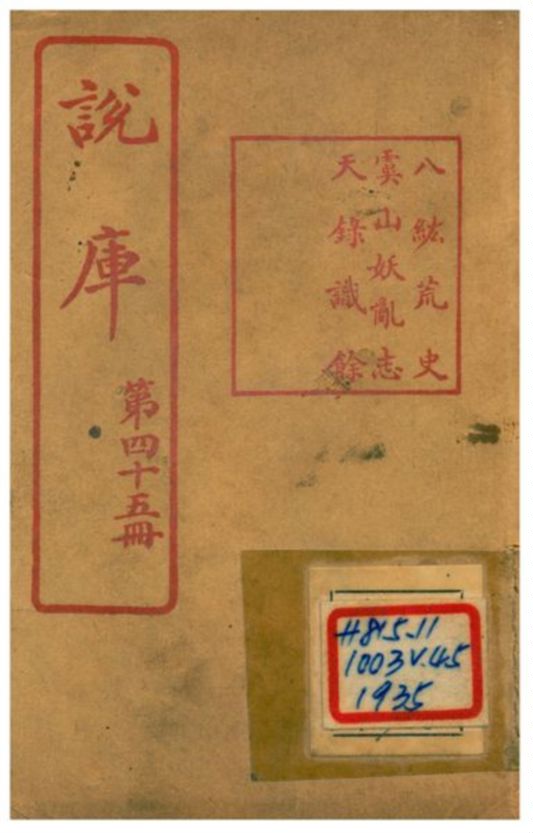 說庫
第四十五冊
八紘荒史
虞山妖亂志
天錄識餘
H815.11
1003 V.45
1935